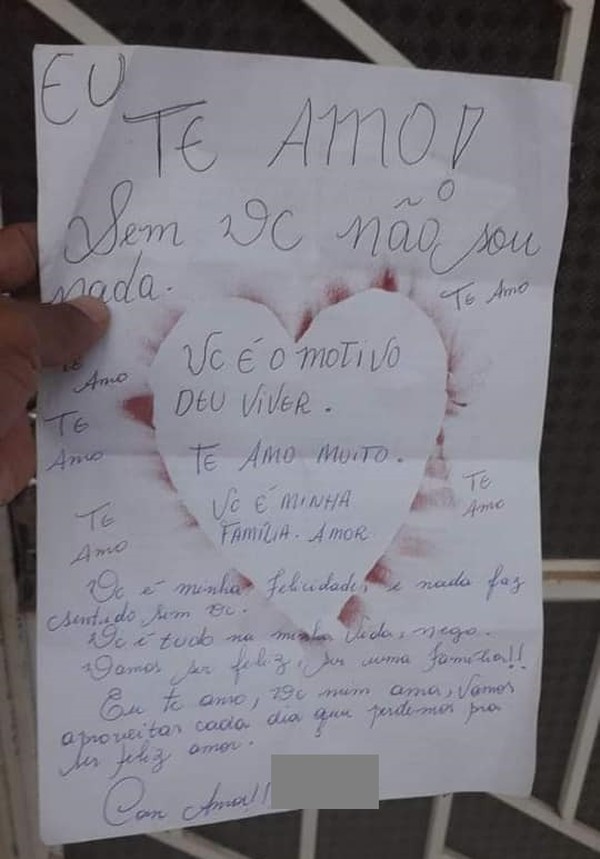 EU
TE AMO!
Sem vc não sou
nada.
TE AMO
TE
AMO
VC É O MOTIVO
DEU VIVER.
TE
AMO
TE AMO MUITO.
TE
AMO
VC É MINHA
FAMÍLIA. AMOR
TE
AMO
Vc é minha felicidade, e nada faz
sentido sem vc.
Vc é tudo na minha vida, nego.
Vamos ser feliz, ser uma família!!
Eu te amo, vc mim ama, vamos
aproveitar cada dia que perdemos pra
ser feliz amor.
Com Amor!!